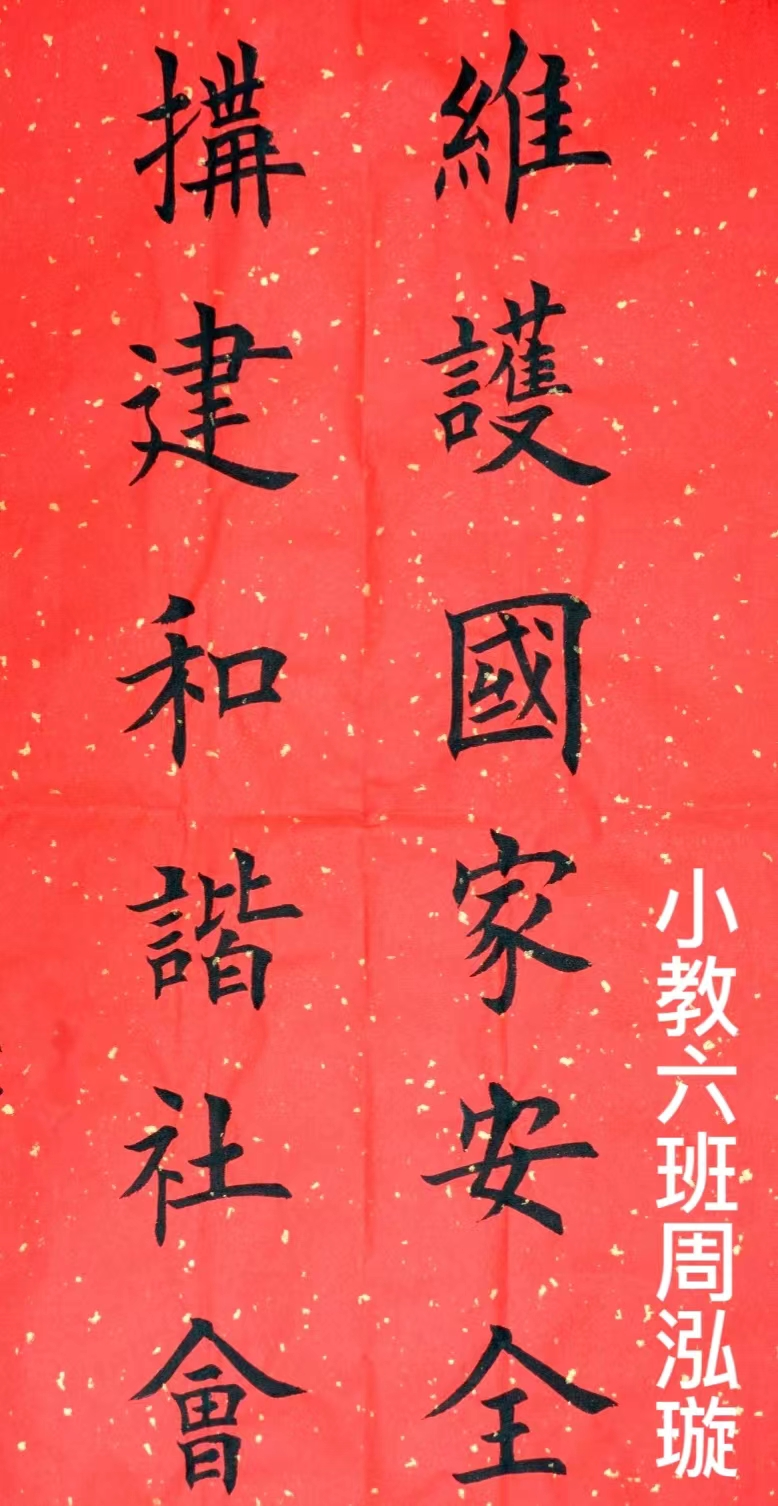 維護國家安全
搆建和諧社會
小教六班周泓璇